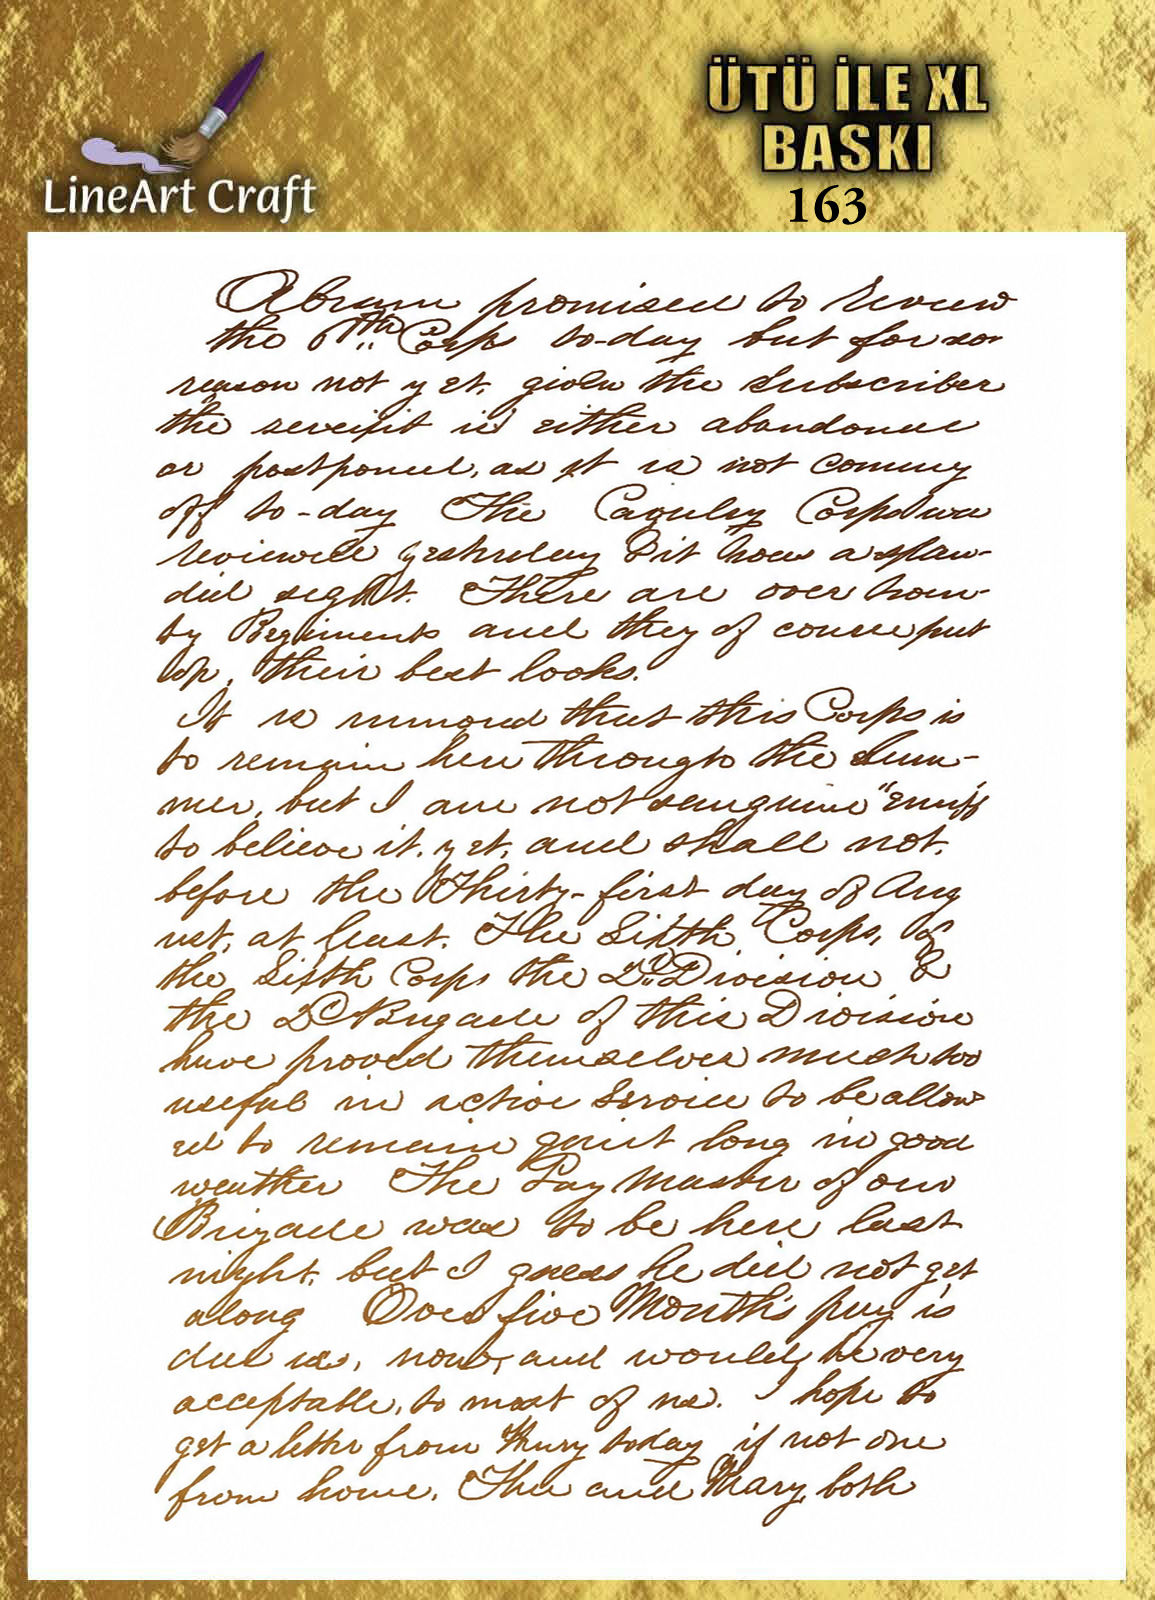 LineArt Craft
ÜTÜ İLE XL
BASKI
163
Abram promised to review
the 6th Corps to-day but for
reason not yet, given the subscriber
the is either abandoned
or postponed, as it is not coming
off to-day The Corps was
reviewed yesterday & it was a splen-
did sight. There are over twen-
ty Regiments and they of course put
on, their best looks.
It is rumored that this Corps is
to remain here through the Sum-
mer, but I am not sanguine "enuff
to believe it, yet, and shall not,
before the Thirty-first day of Aug
ust, at least. The Sixth, Corps, of
the Sixth Corps the 2d. Division &
the 2d Brigade of this Division
have proved themselves much too
useful in active Service to be allow
ed to remain quiet long in good
weather The Pay Master of our
Brigade was to be here last
night, but I guess he did not get
along Over five Months pay is
due us, now, and would, be very
acceptable, to most of us. I hope to
get a letter from today if not one
from home. and Mary, both